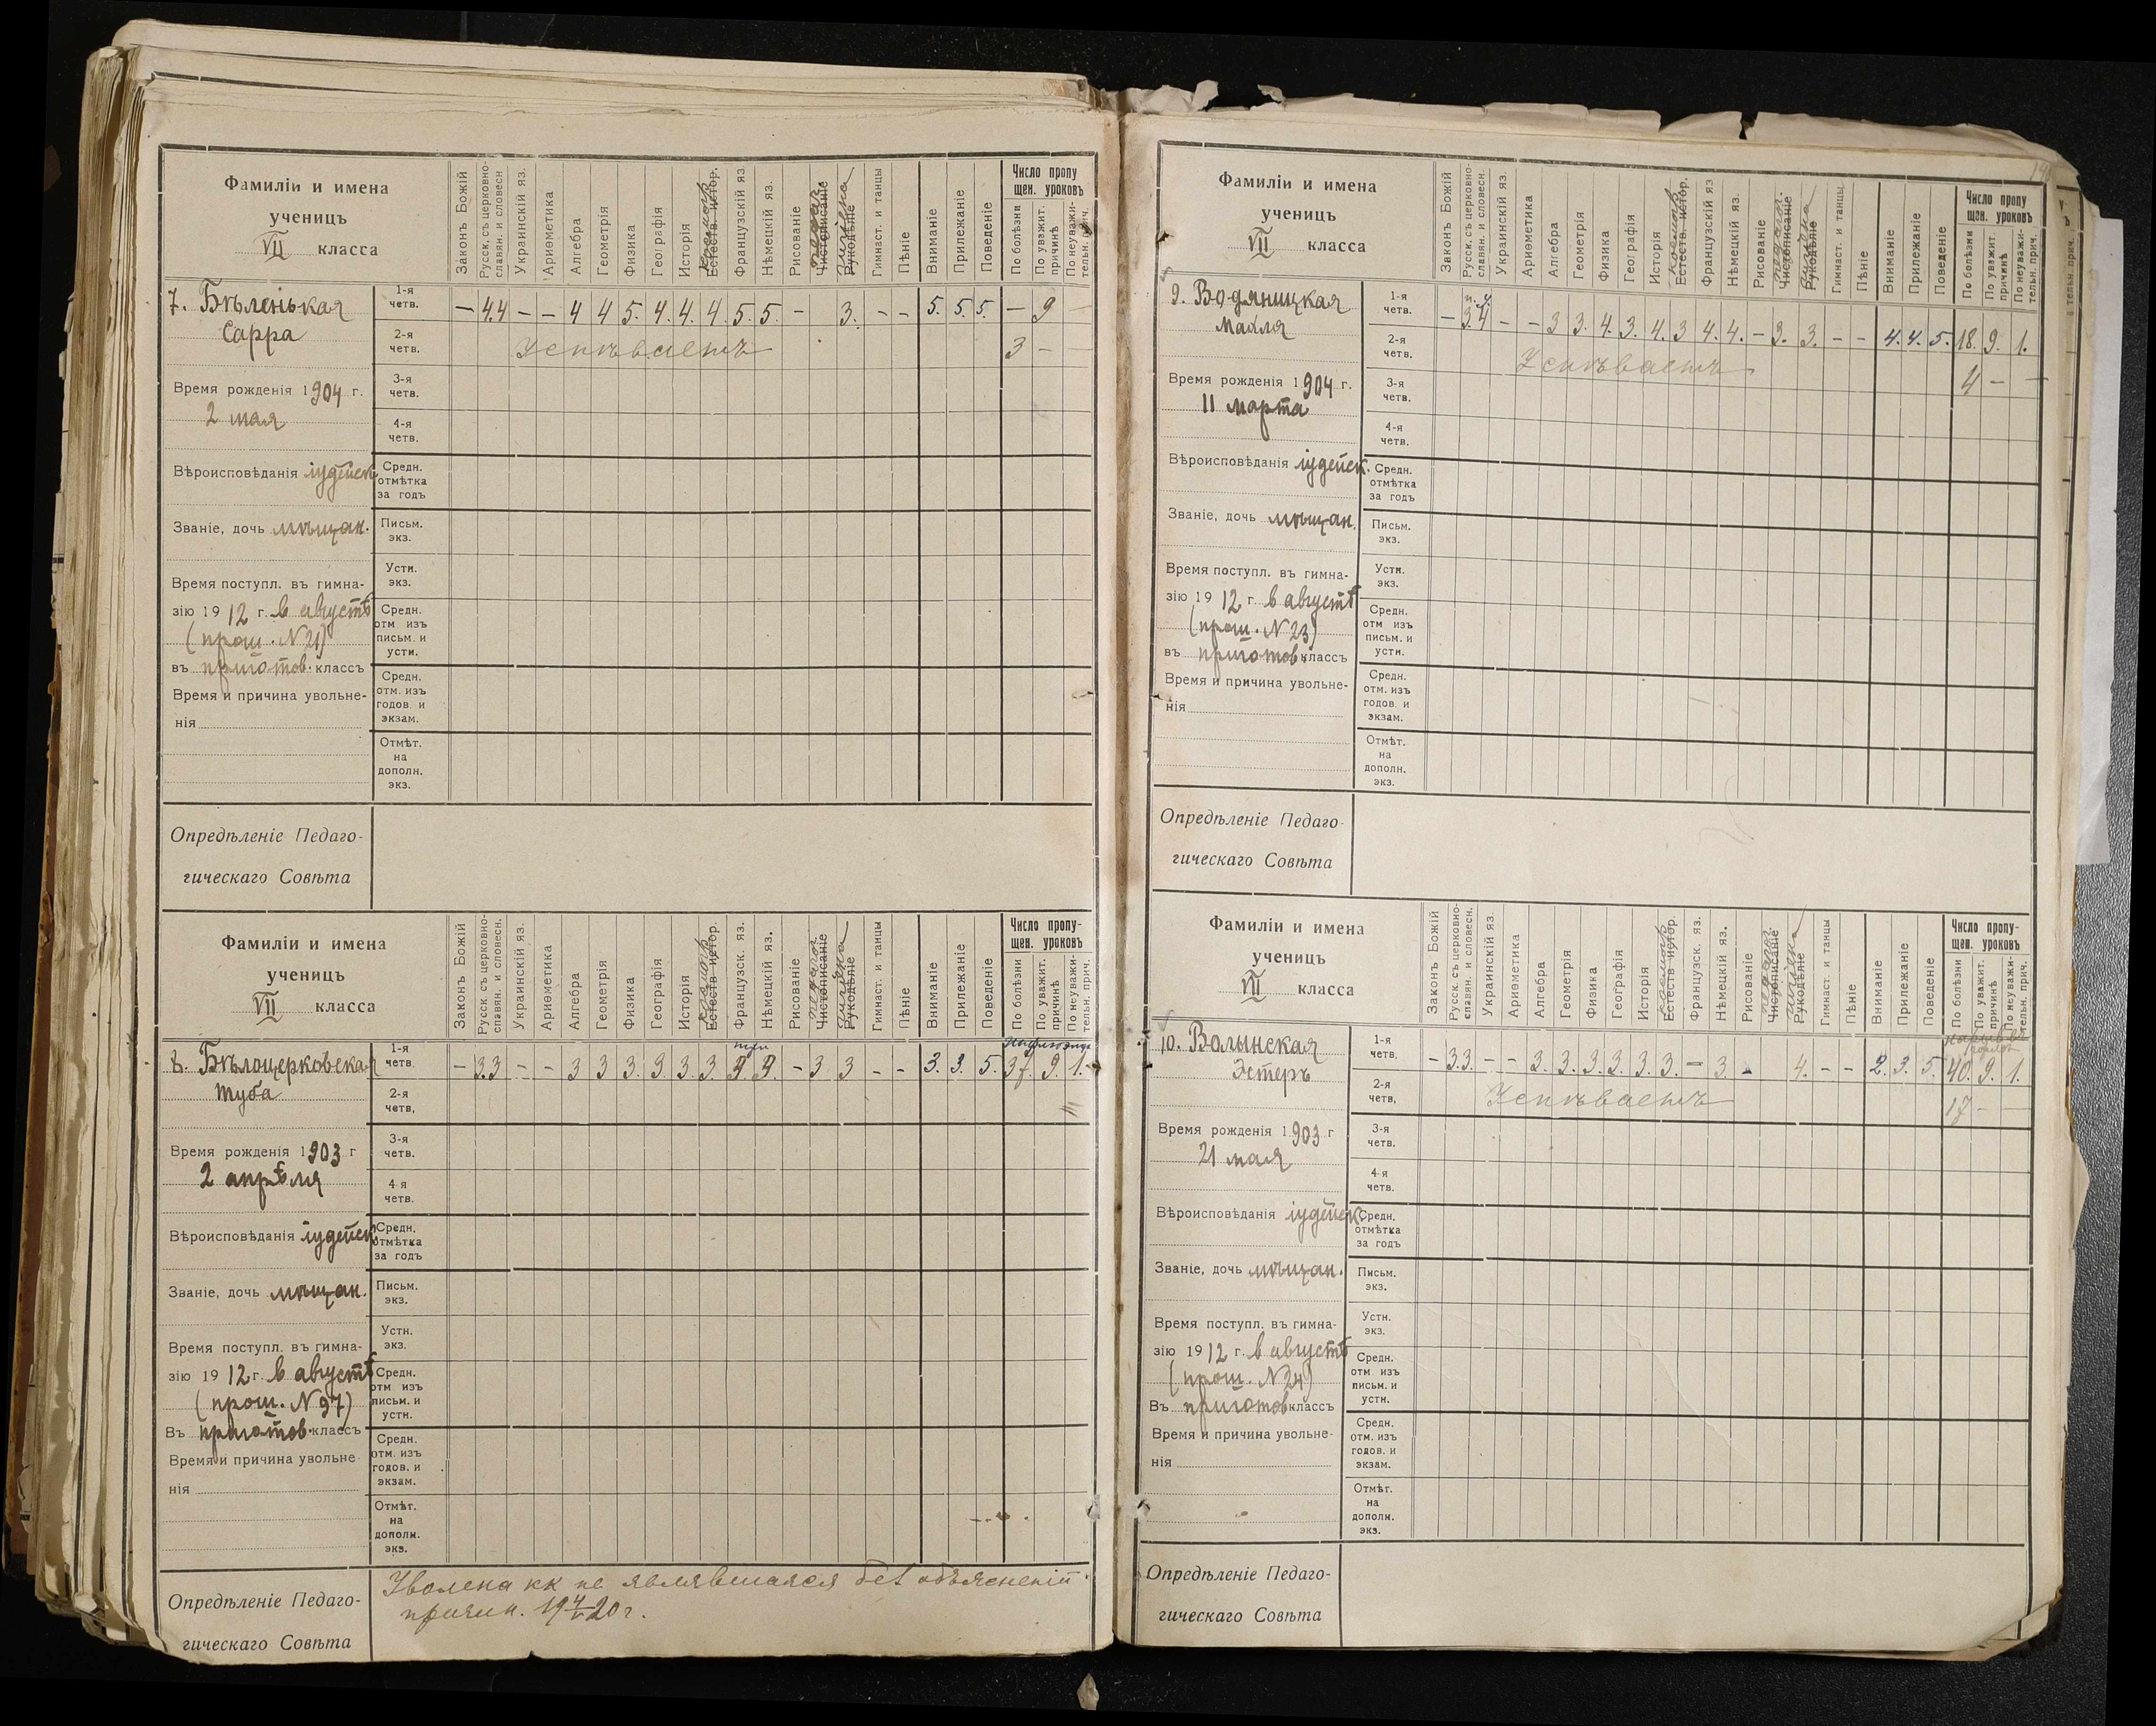 Фамиліи и имена
ученицъ
VII класса
Законъ Божій
Русск. съ церковно-
славян. и словесн
Украинскій яз.
Ариѳметика
Алгебра
Геометрія
Физика
Географія
Исторія
Естеств. истор.
Французскій яз
Нѣмецкій яз.
Рисованіе
Чистописаніе
Рукодѣліе
Гигіена
Гимнаст. и танцы
Пѣніе
Вниманіе
Прилежаніе
Поведеніе
Число пропу
щен. уроковъ
По болѣзни
По уважит.
причинѣ
По неуважи-
тельн. прич.
7. Бѣленькая
Сарра
1-я
четв.
— 4.4 — — 4 4 5. 4. 4. 4. 5. 5. — 3. — — 5. 5. 5. — 9 —
2-я
четв.
Успѣваетъ 3 — —
Время рожденія 1904 г.
2 мая
3-я
четв.
4-я
четв.
Вѣроисповѣданія іудейск
Средн.
отмѣтка
за годъ
Званіе, дочь мѣщан.
Письм.
экз.
Время поступл. въ гимна-
зію 1912 г. в августѣ
(прош. № 21)
въ приготов. классъ
Устн.
экз.
Средн.
отм изъ
письм. и
устн.
Время и причина увольне-
нія
Средн.
отм. изъ
годов. и
экзам.
Отмѣт.
на
дополн.
экз.
Опредѣленіе Педаго-
гическаго Совѣта
Фамиліи и имена
ученицъ
VII класса
Законъ Божій
Русск. съ церковно-
славян. и словесн.
Украинскій яз.
Ариѳметика
Алгебра
Геометрія
Физика
Географія
Исторія
Естеств. истор.
Французск. яз.
Нѣмецкій яз.
Рисованіе
Чистописаніе
Рукодѣліе
Гигіена
Гимнаст. и танцы
Пѣніе
Вниманіе
Прилежаніе
Поведеніе
Число пропу-
щен. уроковъ
По болѣзни
По уважит.
причинѣ
По неуважи-
тельн. прич.
8. Бѣлоцерковская
Туба
1-я
четв.
три
— 3.3 — — 3 3 3. 3. 3. 3. 3. 3. — 3 3 — — 3. 3. 5. 37. 9. 1.
2-я
четв,
Время рожденія 1903 г
2 апрѣля
3-я
четв.
4-я
четв.
Вѣроисповѣданія іудейск
Средн.
отмѣтка
за годъ
Званіе, дочь мѣщан.
Письм.
экз.
Время поступл. въ гимна-
зію 1912 г. в августѣ
(прош. № 97)
Въ приготов. классъ
Устн.
экз.
Средн.
отм изъ
письм. и
устн.
Время и причина увольне-
нія
Средн.
отм. изъ
годов. и
экзам.
Отмѣт.
на
дополн.
экз.
Опредѣленіе Педаго-
гическаго Совѣта
Уволена кк не являвшаяся без объясненій
причин. 19 4/V 20 г.
Фамиліи и имена
ученицъ
VII класса
Законъ Божій
Русск. съ церковно-
славян. и словесн.
Украинскій яз.
Ариѳметика
Алгебра
Геометрія
Физика
Географія
Исторія
Естеств. истор.
Французскій яз
Нѣмецкій яз.
Рисованіе
Чистописаніе
Рукодѣліе
Гигіена
Гимнаст. и танцы
Пѣніе
Вниманіе
Прилежаніе
Поведеніе
Число пропу
щен. уроковъ
По болѣзни
По уважит.
причинѣ
По неуважи-
тельн. прич.
9. Водяницкая
Малля
1-я
четв.
— 3.4 — — 3 3. 4. 3. 4. 3 4. 4. — 3. 3. — — 4. 4. 5. 18. 9. 1.
2-я
четв,
Успѣваетъ 4 — —
Время рожденія 1904 г.
11 марта
3-я
четв.
4-я
четв.
Вѣроисповѣданія іудейск.
Средн.
отмѣтка
за годъ
Званіе, дочь мѣщан.
Письм.
экз.
Время поступл. въ гимна-
зію 1912 г. в августѣ
(прош. № 23)
въ приготов. классъ
Устн.
экз.
Средн.
отм изъ
письм. и
устн.
Время и причина увольне-
нія
Средн.
отм. изъ
годов. и
экзам.
Отмѣт.
на
дополн.
экз.
Опредѣленіе Педаго-
гическаго Совѣта
Фамиліи и имена
ученицъ
VII класса
Законъ Божій
Русск. съ церковно-
славян. и словесн.
Украинскій яз.
Ариѳметика
Алгебра
Геометрія
Физика
Географія
Исторія
Естеств истор.
Французск. яз.
Нѣмецкій яз.
Рисованіе
Чистописаніе
Рукодѣліе
Гигіена
Гимнаст. и танцы
Пѣніе
Вниманіе
Прилежаніе
Поведеніе
Число пропу-
щен. уроковъ
По болѣзни
По уважит.
причинѣ
По неуважи-
тельн. прич.
10. Волынская
Эстеръ
1-я
четв.
— 3.3. — — 3. 3. 3. 3. 3. 3. — 3. — 4. — — 2. 3. 5. 40. 9. 1.
2-я
четв,
Успѣваетъ 17 — —
Время рожденія 1903 г
21 мая
3-я
четв.
4-я
четв.
Вѣроисповѣданія іудейск.
Средн.
отмѣтка
за годъ
Званіе, дочь мѣщан.
Письм.
экз.
Время поступл. въ гимна-
зію 1912 г. в августѣ
(прош. № 24)
Въ приготов классъ
Устн.
экз.
Средн.
отм. изъ
письм. и
устн.
Время и причина увольне-
нія
Средн.
отм. изъ
годов. и
экзам.
Отмѣт.
на
дополн.
экз.
Опредѣленіе Педаго-
гическаго Совѣта